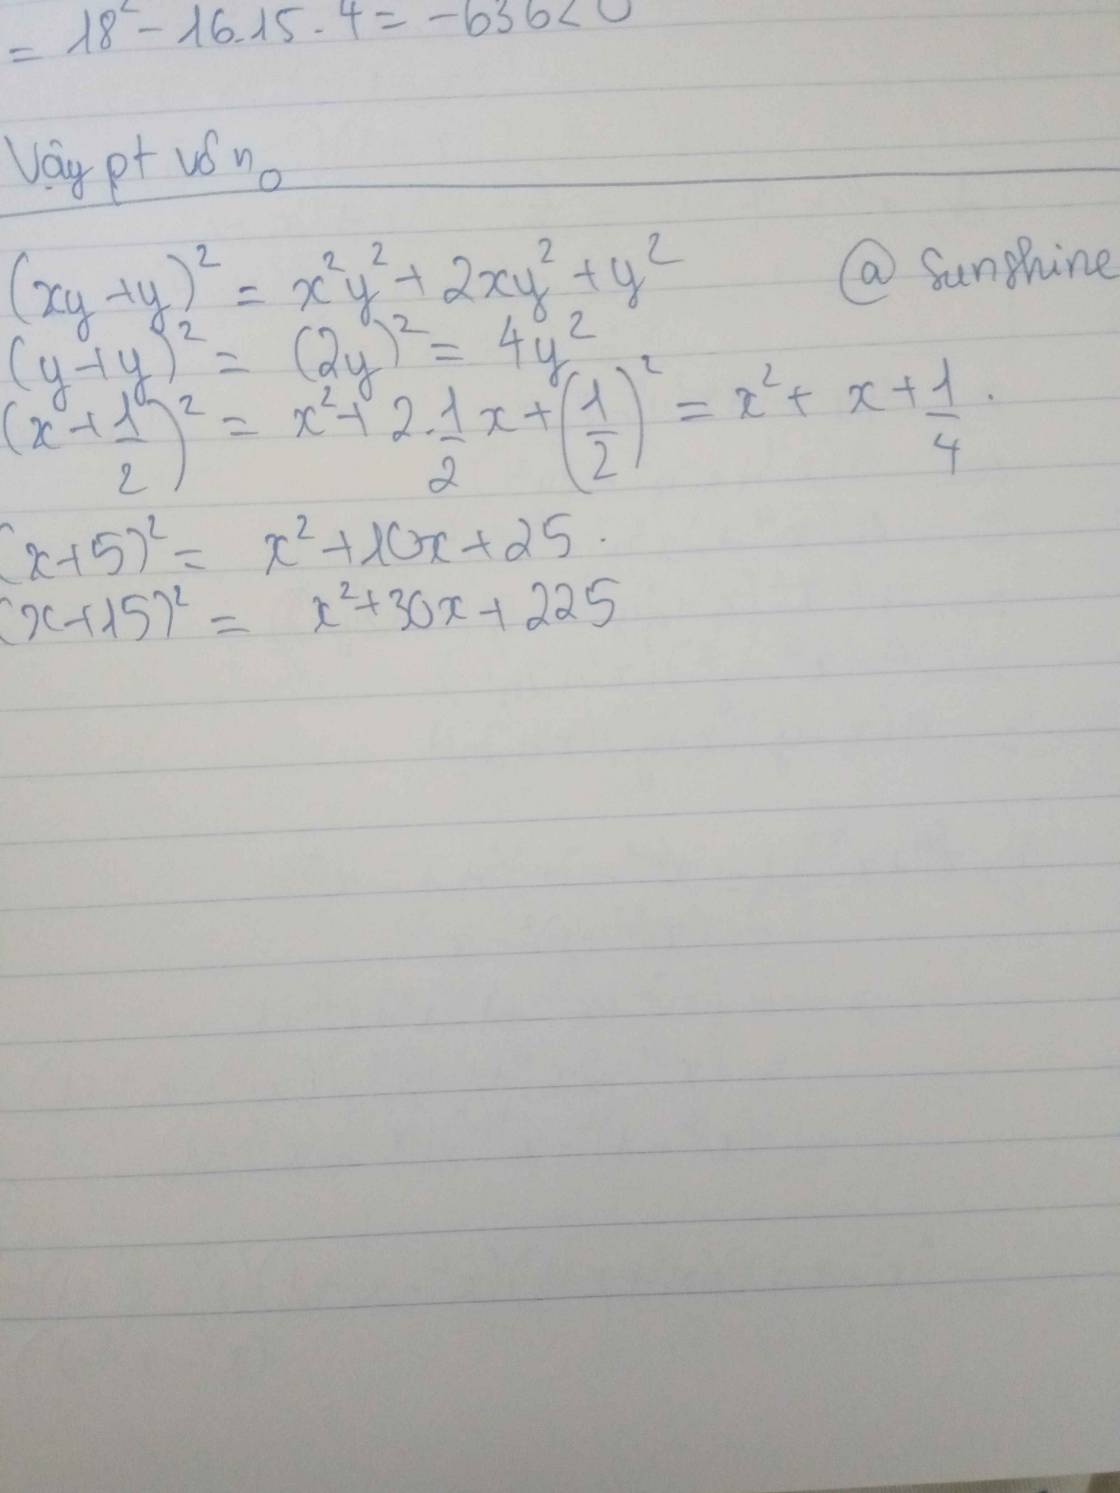 = 18² - 16.15.4 = -636 < 0
Vậy pt vô n₀
(xy+y)² = x²y² + 2xy² + y² @ sunshine
(y+y)² = (2y)² = 4y²
(x+1/2)² = x² + 2.1/2x + (1/2)² = x² + x + 1/4.
(x+5)² = x² + 10x + 25.
(x+15)² = x² + 30x + 225